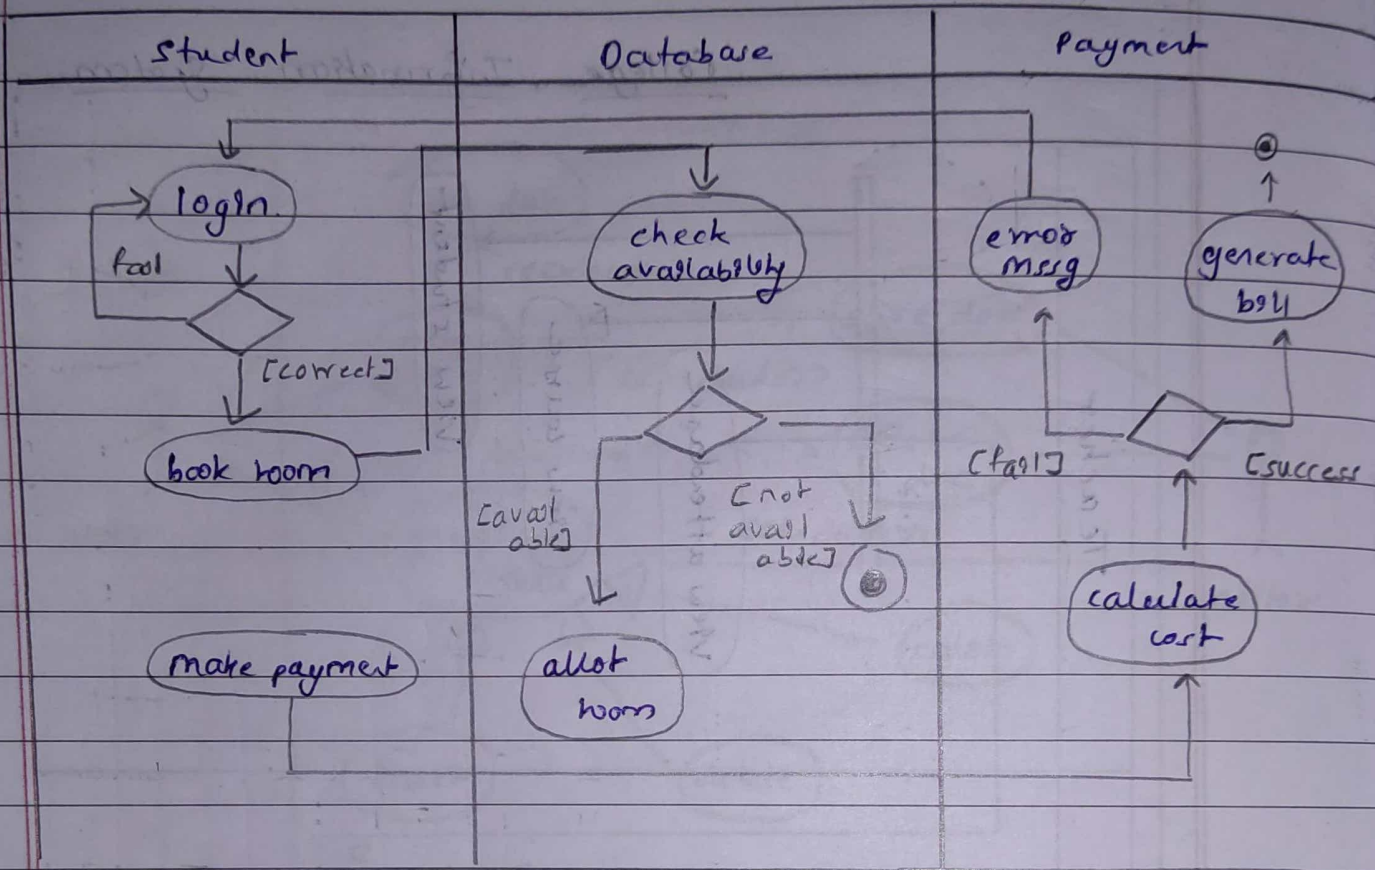 Student
Database
Payment
login
fail
[correct]
book room
make payment
check
availability
[avail
able]
[not
avail
able]
allot
room
error
mssg
generate
bill
[fail]
[success
calculate
cost